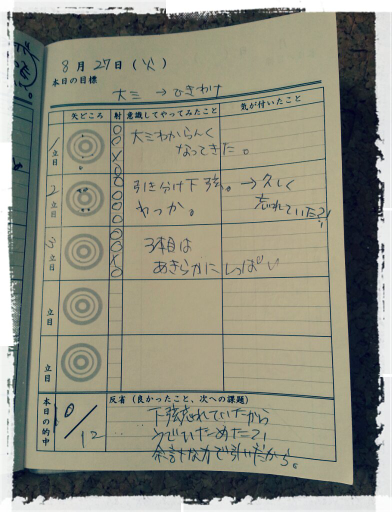 8月27日(火)
本日の目標
大三→ひきわけ
矢どころ 射 意識してやってみたこと 気が付いたこと
1立目 〇〇×〇 大三わからんく
なってきた。
2立目 〇〇〇〇 引き分け下弦。→久しく
わっか。 忘れていた2!
3立目 〇〇×〇 3本目は
あきらかにしっぱい
立目
立目
本日の的中 0/12
反省(良かったこと、次への課題)
下弦忘れていたから
うでいためた2!
余計な力で引いたから。